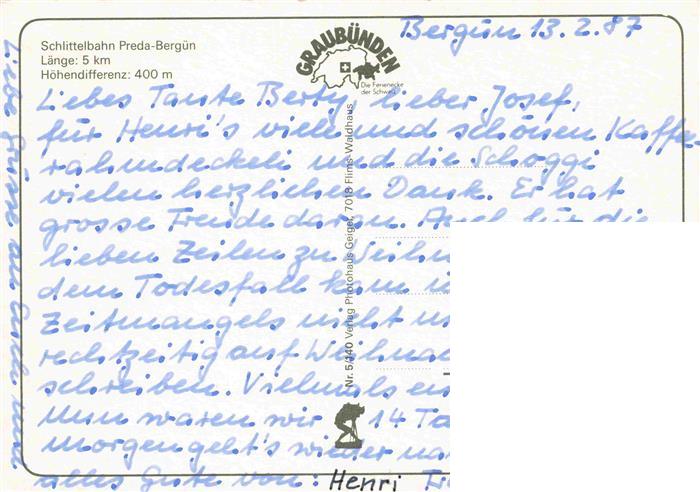 Bergün 13.2.87
Schlittelbahn Preda-Bergün
Länge: 5 km
Höhendifferenz: 400 m
GRAUBÜNDEN
Die Ferienecke
der Schweiz
Liebes Tante Berty, lieber Josef,
für Henri's viele und schönen Kaffe-
rahmdeckeli und die Schoggi
vielen herzlichen Dank. Er hat
grosse Freude daran. Auch für die
lieben Zeilen zu Weihn
dem Todesfall kam
Zeitmangels nicht
rechtzeitig auf Weihna
schreiben. Vielmals en
Nun waren wir 14 Ta
morgen geht's wieder na
alles Gute von: Henri
Nr. 5/140 Verlag Photohaus Geiger, 7018 Flims-Waldhaus
Liebe Grüsse an Euch